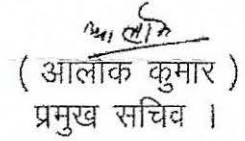 ( आलोक कुमार )
प्रमुख सचिव ।